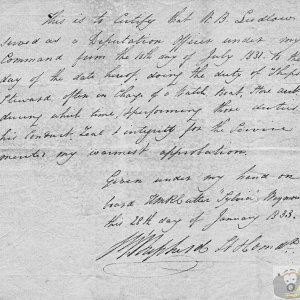 This is to Certify that R.B. Ludlow
served as a Deputation Officer under my
Command from the 18th day of July 1831. to the
day of the date hereof, doing the duty of Ship
Steward often in Charge of a Boat, &
during which time, performing those duties
his Conduct Zeal & integrity for the Service
merited my warmest approbation.
Given under my hand on
board HMRCutter "Sylvia" Weymouth
this 28th day of January 1833.